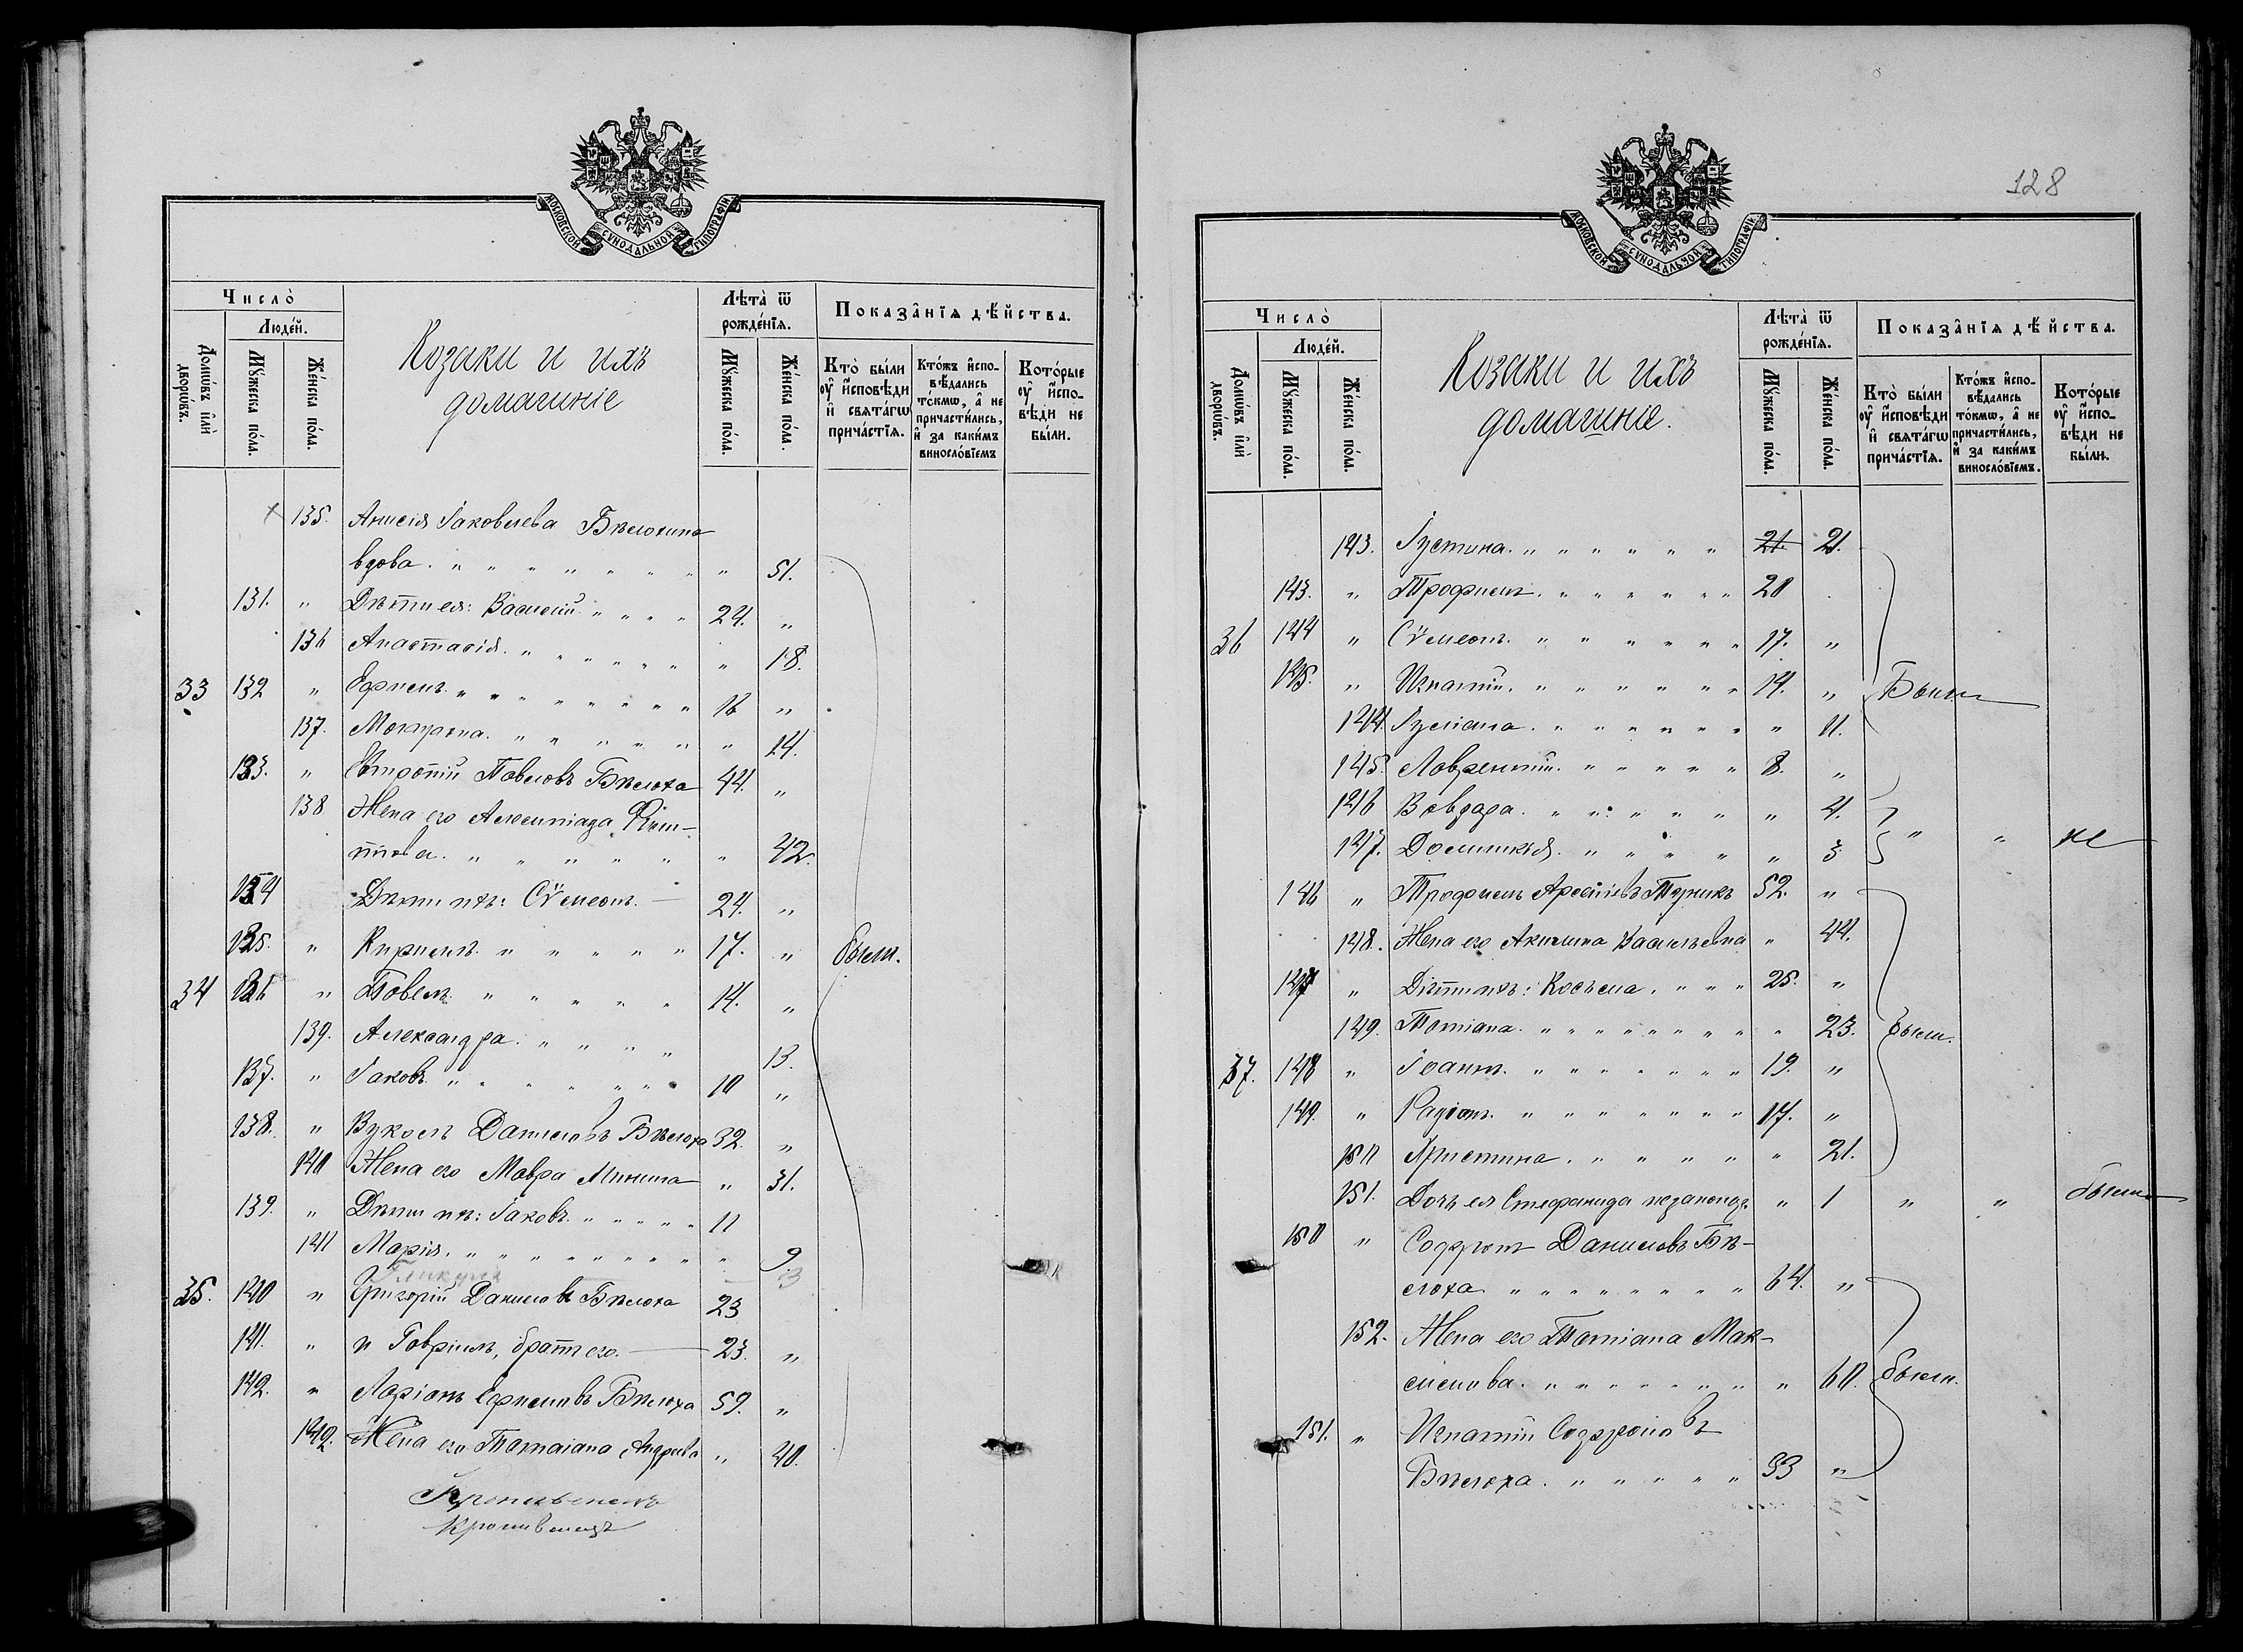 МОСКОВСКОЙ СУНОДАЛЬНОЙ ТИПОГРАФІИ
Число̀
Людей.
Домѡвъ и҆лѝ дворѡвъ.
Мꙋжеска пола.
Женска пола.
Козаки и ихъ
домашніе
Лѣта̀ ѿ
рожденїѧ.
Мꙋжеска пола.
Женска пола.
Показанїѧ дѣйства.
Кто̀ были оу҆ и҆сповѣди и҆ свѧтагѡ причастїѧ.
Ктожъ и҆сповѣдались токмѡ, а҆ не причастились, и҆ за какимъ винословїемъ
Которые оу҆ и҆сповѣди не были.
135. Анисія Іаковлева Бѣлохина
вдова. " " " " " " " " 51.
131. " Дѣти ея: Василій " " " " 24. "
136 Анастасія. " " " " " " " 18.
33 132 " Ефимъ. " " " " " " " 16 "
137. Мокрина. " " " " " " 14.
133. " Евтропій Павловъ Бѣлоха 44. "
138 Жена его Алимпіада
" " " " " 42.
134 Дѣти ихъ: Сѷмеонъ. — 24. "
135. " Кириллъ. " " " " " 17. " были.
34 136 " Павелъ. " " " " " 14. "
139. Александра. " " " " 13.
137. " Іаковъ. " " " " " " 10 "
138. " Вуколъ Даниловъ Бѣлоха 32. "
140 Жена его Мавра Минина " 31.
139. " Дѣти ихъ: Іаковъ. " " " " " 11
141 Марія. " " " " " " " " 9
35. 140 " Григорій Даниловъ Бѣлоха 23
141. " и Гавріилъ, братъ его. — 23. "
142. " Ларіонъ Ефимовъ Бѣлоха 59. "
142. Жена его Татаіана Андреева " 40.
128
МОСКОВСКОЙ СУНОДАЛЬНОЙ ТИПОГРАФІИ
Число̀
Людей.
Домѡвъ и҆лѝ дворѡвъ.
Мꙋжеска пола.
Женска пола.
Козаки и ихъ
домашніе.
Лѣта̀ ѿ
рожденїѧ.
Мꙋжеска пола.
Женска пола.
Показанїѧ дѣйства.
Кто̀ были оу҆ и҆сповѣди и҆ свѧтагѡ причастїѧ.
Ктожъ и҆сповѣдались токмѡ, а҆ не причастились, и҆ за какимъ винословїемъ.
Которые оу҆ и҆сповѣди не были.
143. Іустина. " " " " " " 21. 21.
143. " Трофимъ. " " " " " " 20
36 144 " Сѷмеонъ. " " " " " " 17. "
145. " Игнатій. " " " " " " 14. " Были
144. Іуліана. " " " " " " " 11.
145. Лаврентій. " " " " " 8. "
146 Варвара. " " " " " " 4.
147. Домникія. " " " " " 3 " " не
146 " Трофимъ 52. "
148. Жена его Акилина Васильевна " 44.
147 " Дѣти ихъ: Косьма. " " " 25. "
149. Татіана. " " " " " " " " 23. были.
37. 148 " Іоаннъ. " " " " " " " 19. "
149. " Родіонъ. " " " " " " " 17. "
150 Христина. " " " " " " 21.
151. Дочь ея Стефанида незаконор. " 1 " " были
150 " Софронъ Даниловъ Бѣ-
лоха " " " " " " " " 64. "
152. Жена его Татіана Мак-
симова. " " " " " " " " 60. были.
151. " Игнатій Софроновъ
Бѣлоха. " " " " " 33 "